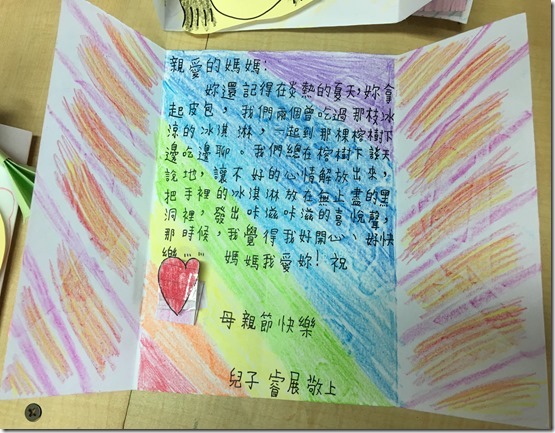 親愛的媽媽：
妳還記得在炎熱的夏天，妳拿
起皮包，我們兩個曾吃過那枝冰
涼的冰淇淋，一起到那棵榕樹下
邊吃邊聊。我們總在榕樹下談天
說地，讓不好的心情解放出來，
把手裡的冰淇淋放在無止盡的黑
洞裡，發出咔滋咔滋的喜悅聲，
那時候，我覺得我好開心、好快
樂……媽媽我愛妳！祝
母親節快樂
兒子 睿展 敬上